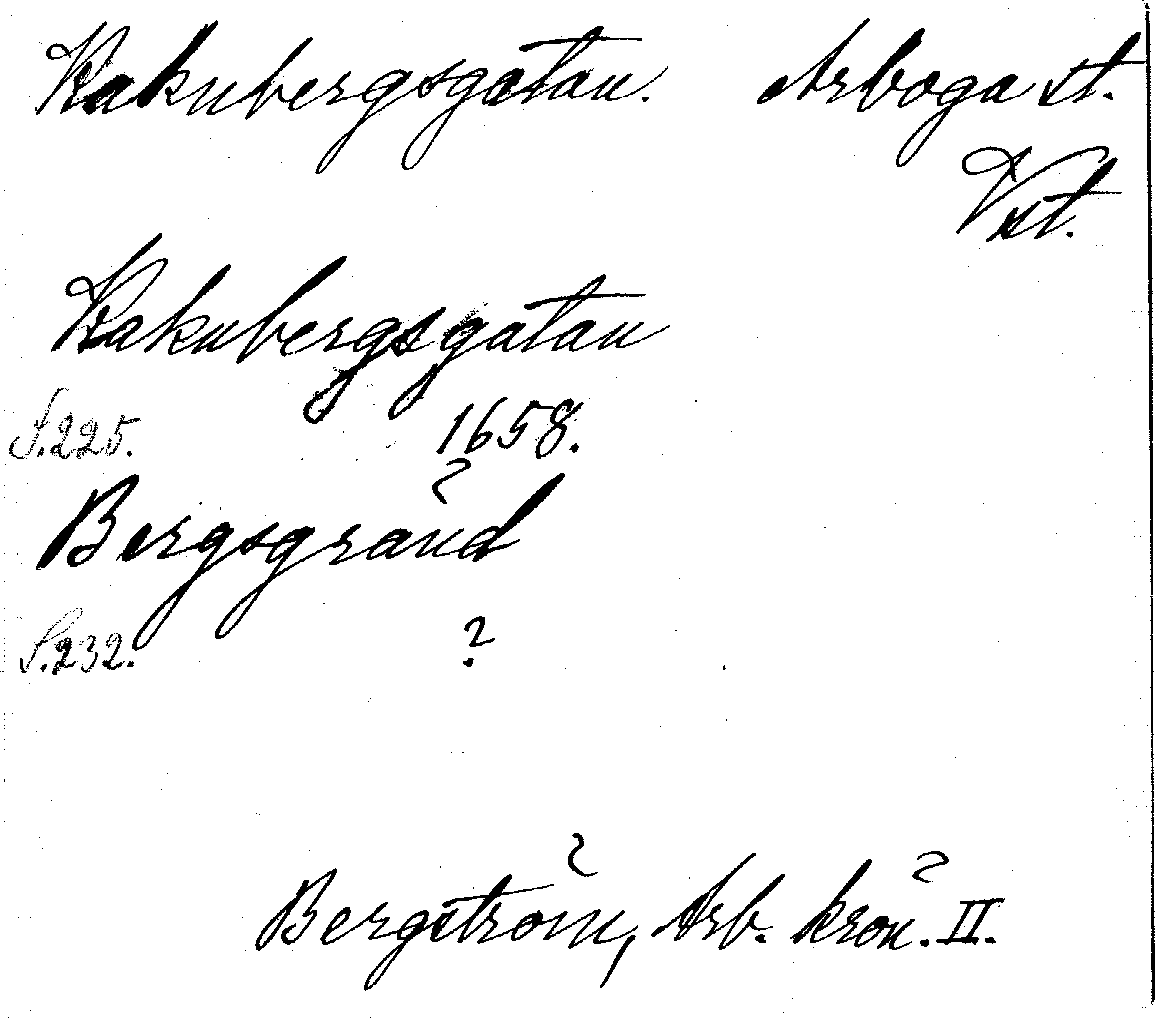 Kaknbergsgatan. Arboga st.
Vst.
Kaknbergsgatan
S. 225. 1658.
Bergsgränd
S. 232. ?
Bergström, Arb. krön. II.